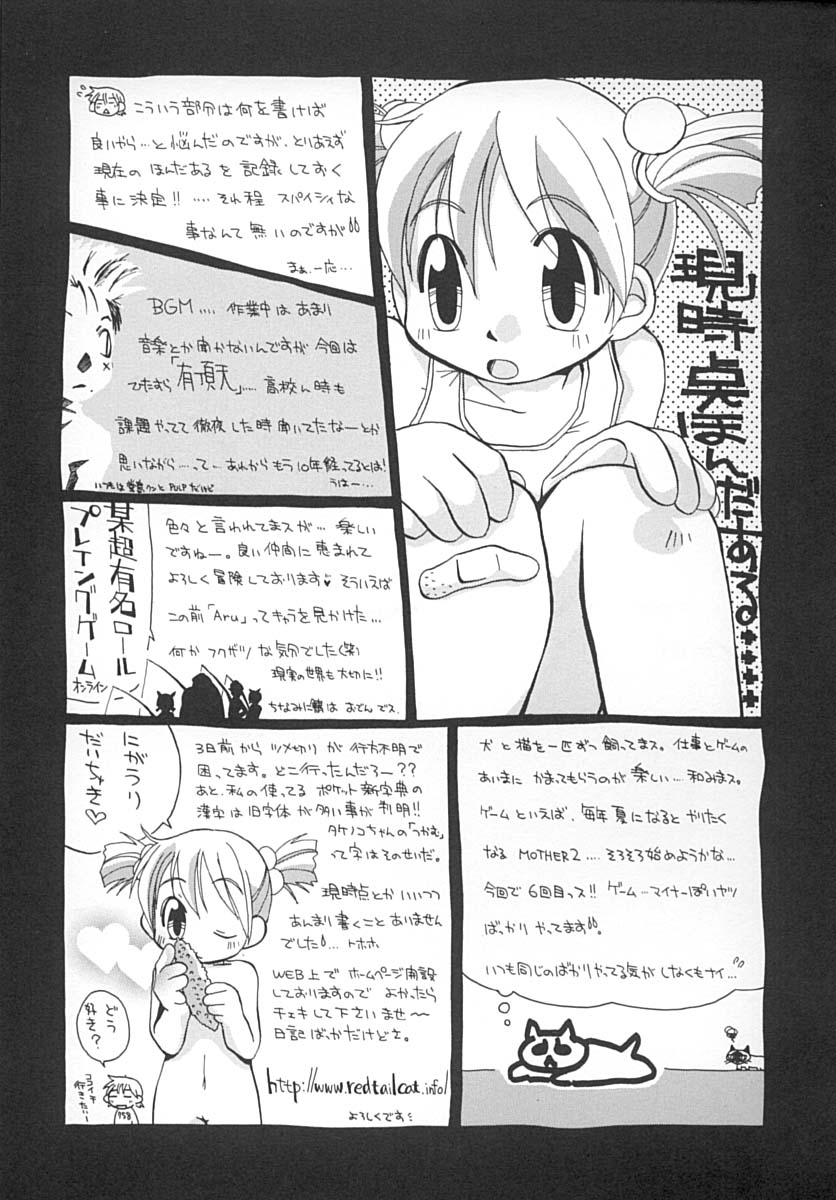 現時点ほんだある・・・・
こういう部分は何を書けば
良いやら…と悩んだのですが、とりあえず
現在のほんだあるを記録しておく
事に決定!! ….それ程スパイシィな
事なんて無いのですが
まぁ、一応…
BGM.... 作業中はあまり
音楽とか聞かないんですが今回は
てたむら「有頂天」….. 高校ん時も
課題やってて徹夜した時聞いてたなーとか
思いながら…..って、あれからもう10年経ってるとは!
うはー…
某超有名ロール
プレイングゲーム
オンライン
色々と言われてまスが… 楽しい
ですねー。良い仲間に恵まれて
よろしく冒険しております♥そういえば
この前「Aru」ってキャラを見かけた…
何かフクザツな気分でした(笑)
現実の世界も大切に!!
ちなみに鯖はおでんでス.
犬と猫を一匹ずつ飼ってまス。仕事とゲームの
あいまにかまってもらうのが楽しい….和みまス。
ゲームといえば、毎年夏になるとやりたく
なるMOTHER2….そろそろ始めようかな…
今回で6回目っス!! ゲーム…マイナーぽいヤツ
ばっかりやってます。
いつも同じのばかりやってる気がしなくもナイ…
にがうり
だいちゅき♡
3日前からツメ切りが行方不明で
困ってます。どこ行ったんだろー??
あと、私の使ってるポケット新字典の
漢字は旧字体が多い事が判明!!
タケノコちゃんの「つかむ」
って字はそのせいだ。
現時点とかいいつつ
あんまり書くことありません
でした!…トホホ
WEB上でホームページ開設
しておりますのでよかったら
チェキして下さいませ〜
日記ばっかだけどさ。
http://www.redtailcat.info/
よろしくです
どう
好き?
ココイチ
行きたい!